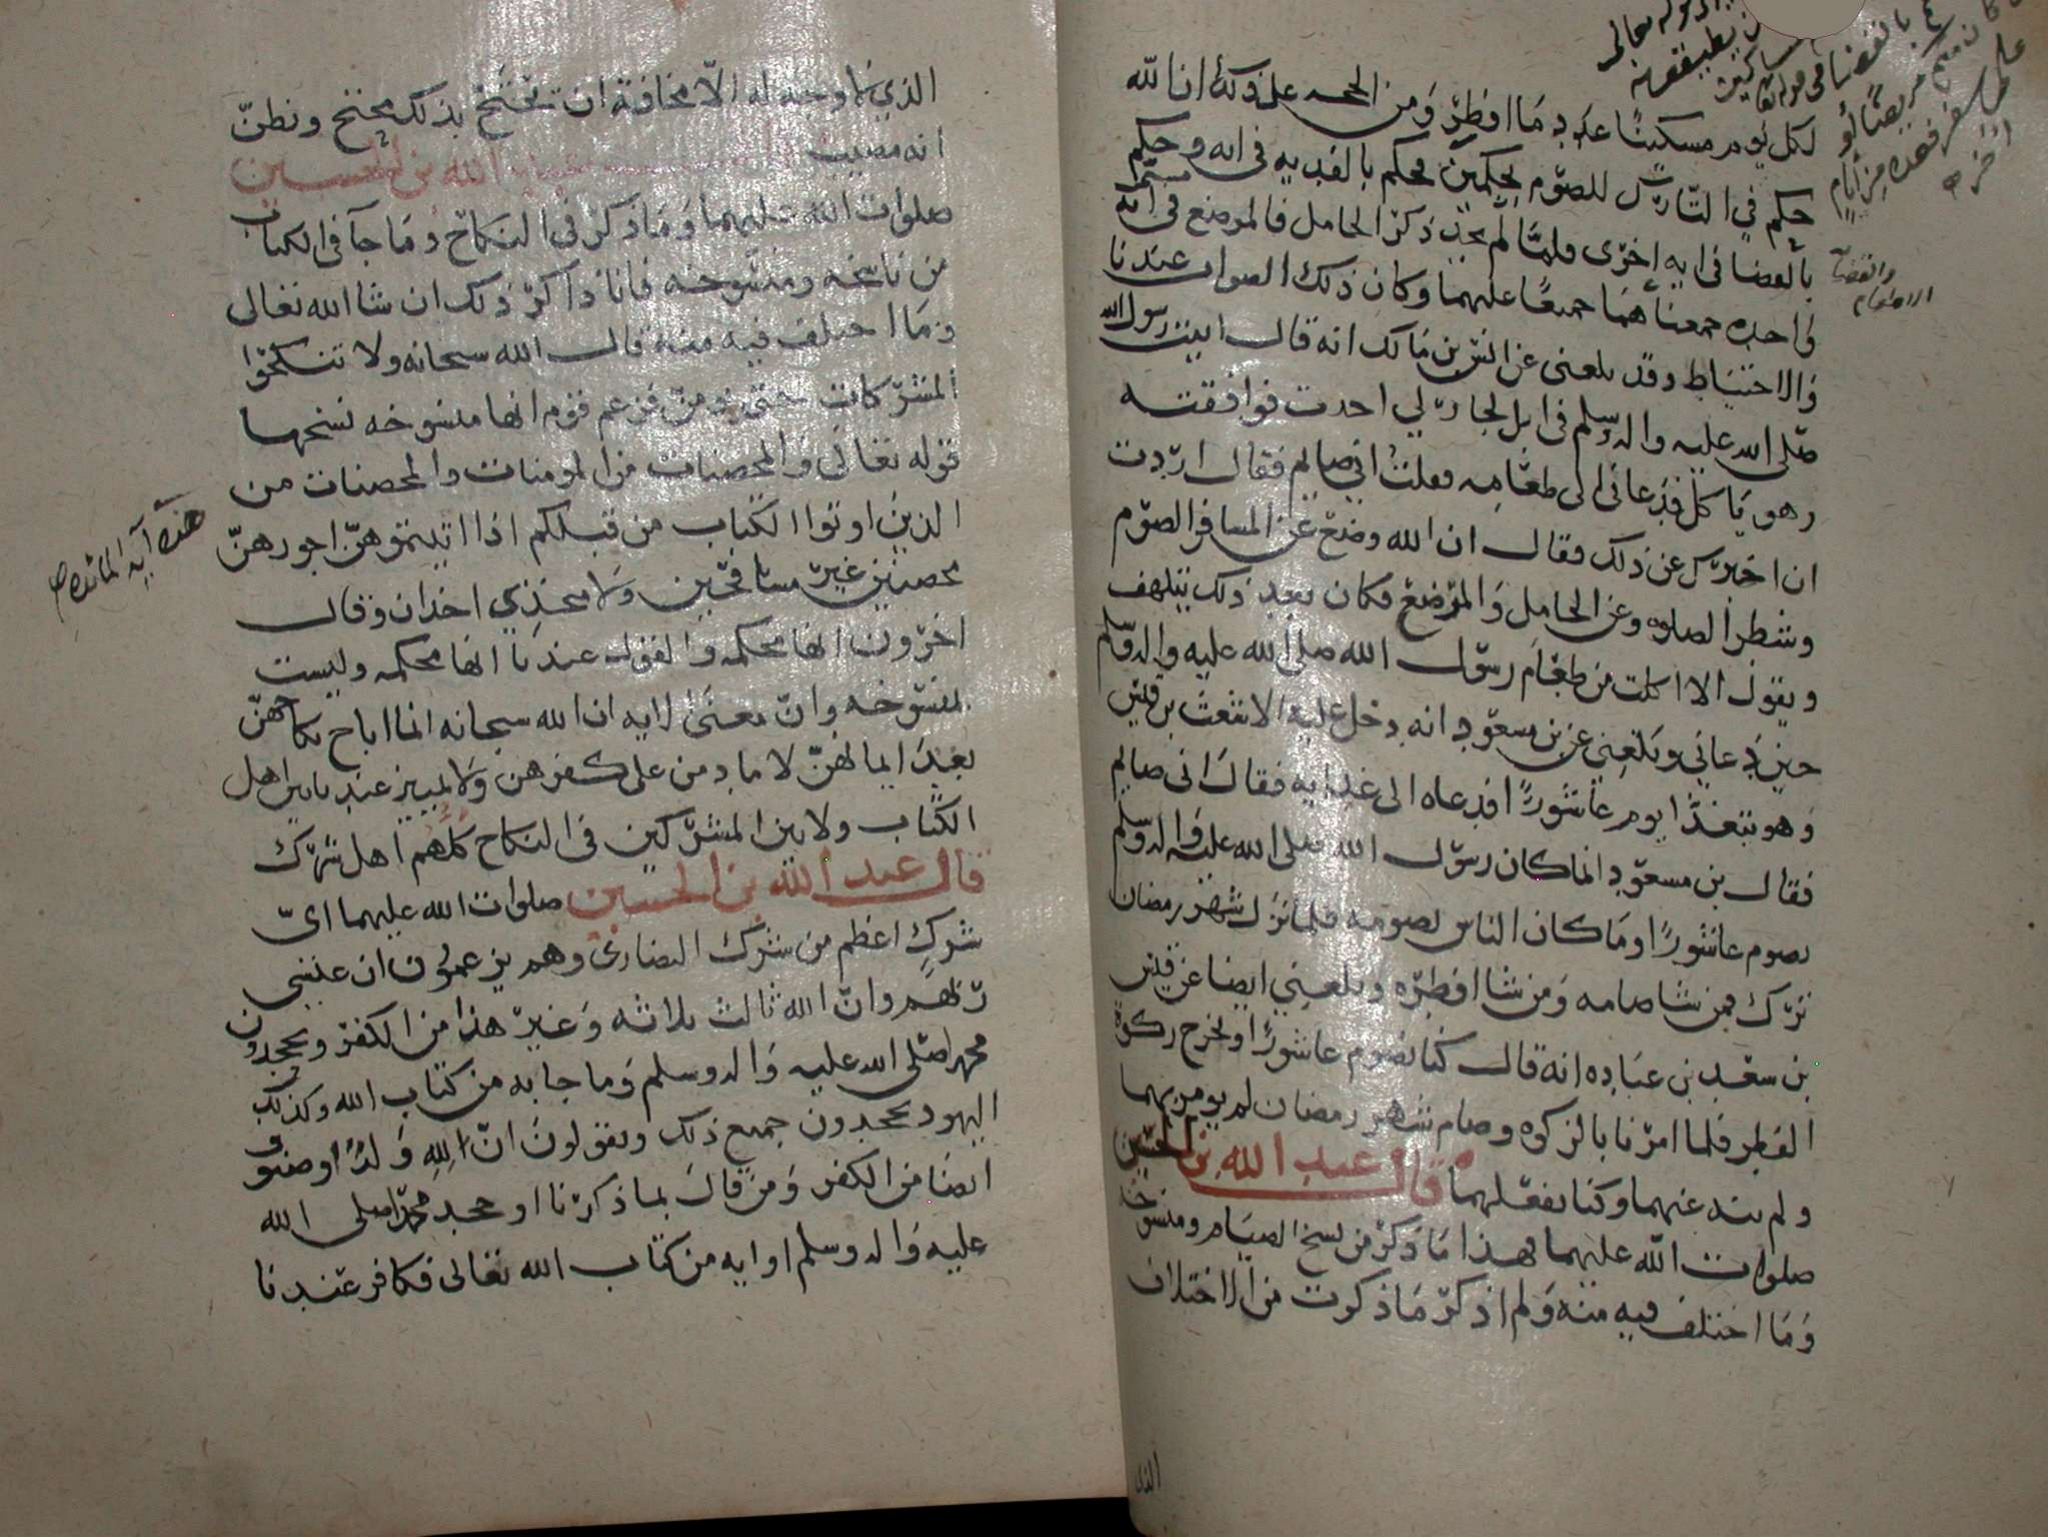 لكل يوم مسكينا عدد ما افطر ومن الحجه على ذلك ان الله
حكم في التارك للصوم بحكمين فحكم بالفديه في ايه وحكم
بالقضا في ايه اخرى فلما لم يجد ذكر الحامل فالمرضع في ايه مسمى
واحده جمعناهما جميعا عليهما وكان ذلك الصواب عندنا
والاحتياط وقد بلغني عن انس بن مالك انه قال اتيت رسول الله
صلى الله عليه واله وسلم في ابل لجار لي اخذت فوافقته
وهو ياكل فدعاني الى طعامه فقلت اني صايم فقال اردت
ان اخبرك عن ذلك فقال ان الله وضع عن المسافر الصوم
وشطر الصلوه وعن الحامل والمرضع فكان بعد ذلك يتلهف
ويقول الا اكلت من طعام رسول الله صلى الله عليه واله وسلم
حين دعاني وبلغني عن بن مسعود انه دخل عليه الاشعث بن قيس
وهو يتغذا يوم عاشورا فدعاه الى غدايه فقال اني صايم
فقال بن مسعود انما كان رسول الله صلى الله عليه واله وسلم
يصوم عاشورا وما كان الناس يصومه فلما نزل شهر رمضان
ترك فمن شا صامه ومن شا افطره وبلغني ايضا عن قيس
بن سعد بن عباده انه قال كنا نصوم عاشورا ونخرج زكوة
الفطر فلما امرنا بالزكوه وصام شهر رمضان لم يومر بهما
ولم ينه عنهما وكنا نفعلهما قال عبد الله بن الحسين
صلوات الله عليهما فهذا ما ذكر من نسخ الصيام ومنسوخه
وما اختلف فيه منه ولم اذكر ما ذكرت من الاختلاف
الذي
والقضا
الاطعام
مريضا أو
على سفر فعدة من أيام
أخر
الذي لا وجه له الا مخافة ان يحتج بذلك محتج ونظن
انه مصيب عبد الله بن الحسين
صلوات الله عليهما وما ذكر في النكاح وما جآ في الكتاب
من ناسخه ومنسوخه فانا ذاكر ذلك ان شا الله تعالى
وما اختلف فيه منه قال الله سبحانه ولا تنكحوا
المشركات حتى يومن فزعم قوم انها منسوخه نسخها
قوله تعالى والمحصنات من المومنات والمحصنات من
الذين اوتوا الكتاب من قبلكم اذا اتيتموهن اجورهن
محصنين غير مسافحين ولا متخذي اخدان وقال
اخرون انها محكمه والقول عندنا انها محكمه وليست
بمنسوخه وان معنى الايه ان الله سبحانه انما اباح نكاحهن
بعد ايمانهن لا ما دمن على كفرهن ولا تمييز عندنا بين اهل
الكتاب ولا بين المشركين في النكاح كلهم اهل شرك
قال عبد الله بن الحسين صلوات الله عليهما اي
شرك اعظم من شرك النصارى وهم يزعمون ان عيسى
ربهم وان الله ثالث ثلاثه وغير هذا من الكفر ويجحدون
محمد صلى الله عليه واله وسلم وما جا به من كتاب الله وكذلك
اليهود يجحدون جميع ذلك ويقولون ان لله ولدا وصنوف
ايضا من الكفر ومن قال بما ذكرنا او جحد محمد صلى الله
عليه واله وسلم او ايه من كتاب الله تعالى فكافر عندنا
هذه آية المائدة